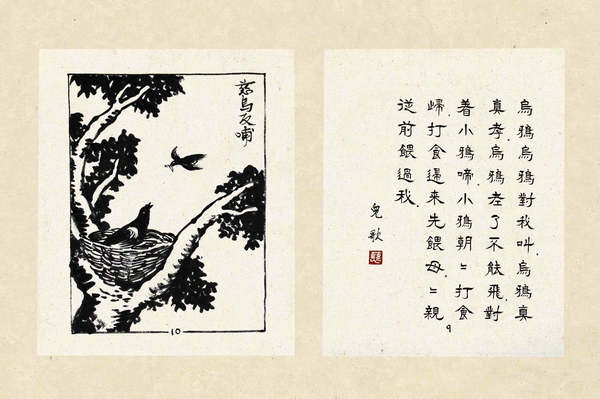 烏鴉烏鴉對我叫烏鴉真
真孝烏鴉老了不能飛對
著小鴉啼小鴉朝〻打食
歸打食歸來先餵母〻親
從前餵過我
兒歌
9
慈烏反哺
10